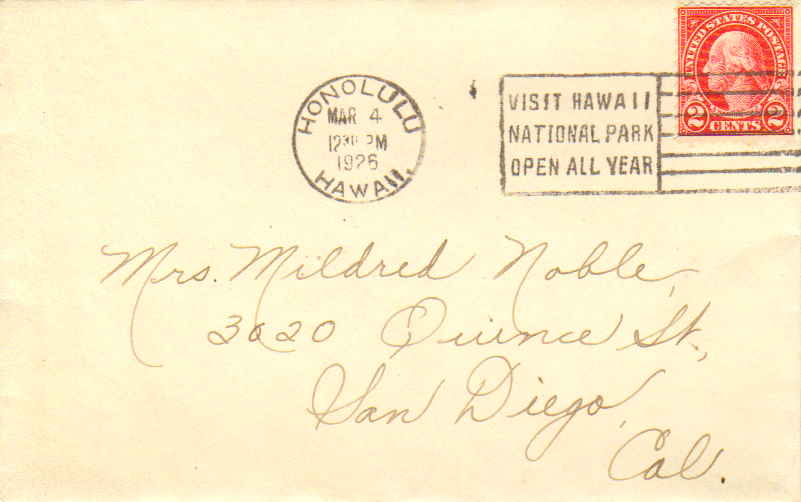 UNITED STATES POSTAGE
2 CENTS 2
HONOLULU
MAR 4
PM
1926
HAWAII.
VISIT HAWAII
NATIONAL PARK
OPEN ALL YEAR
Mrs. Mildred Noble,
3020 Quince St.,
San Diego,
Cal.